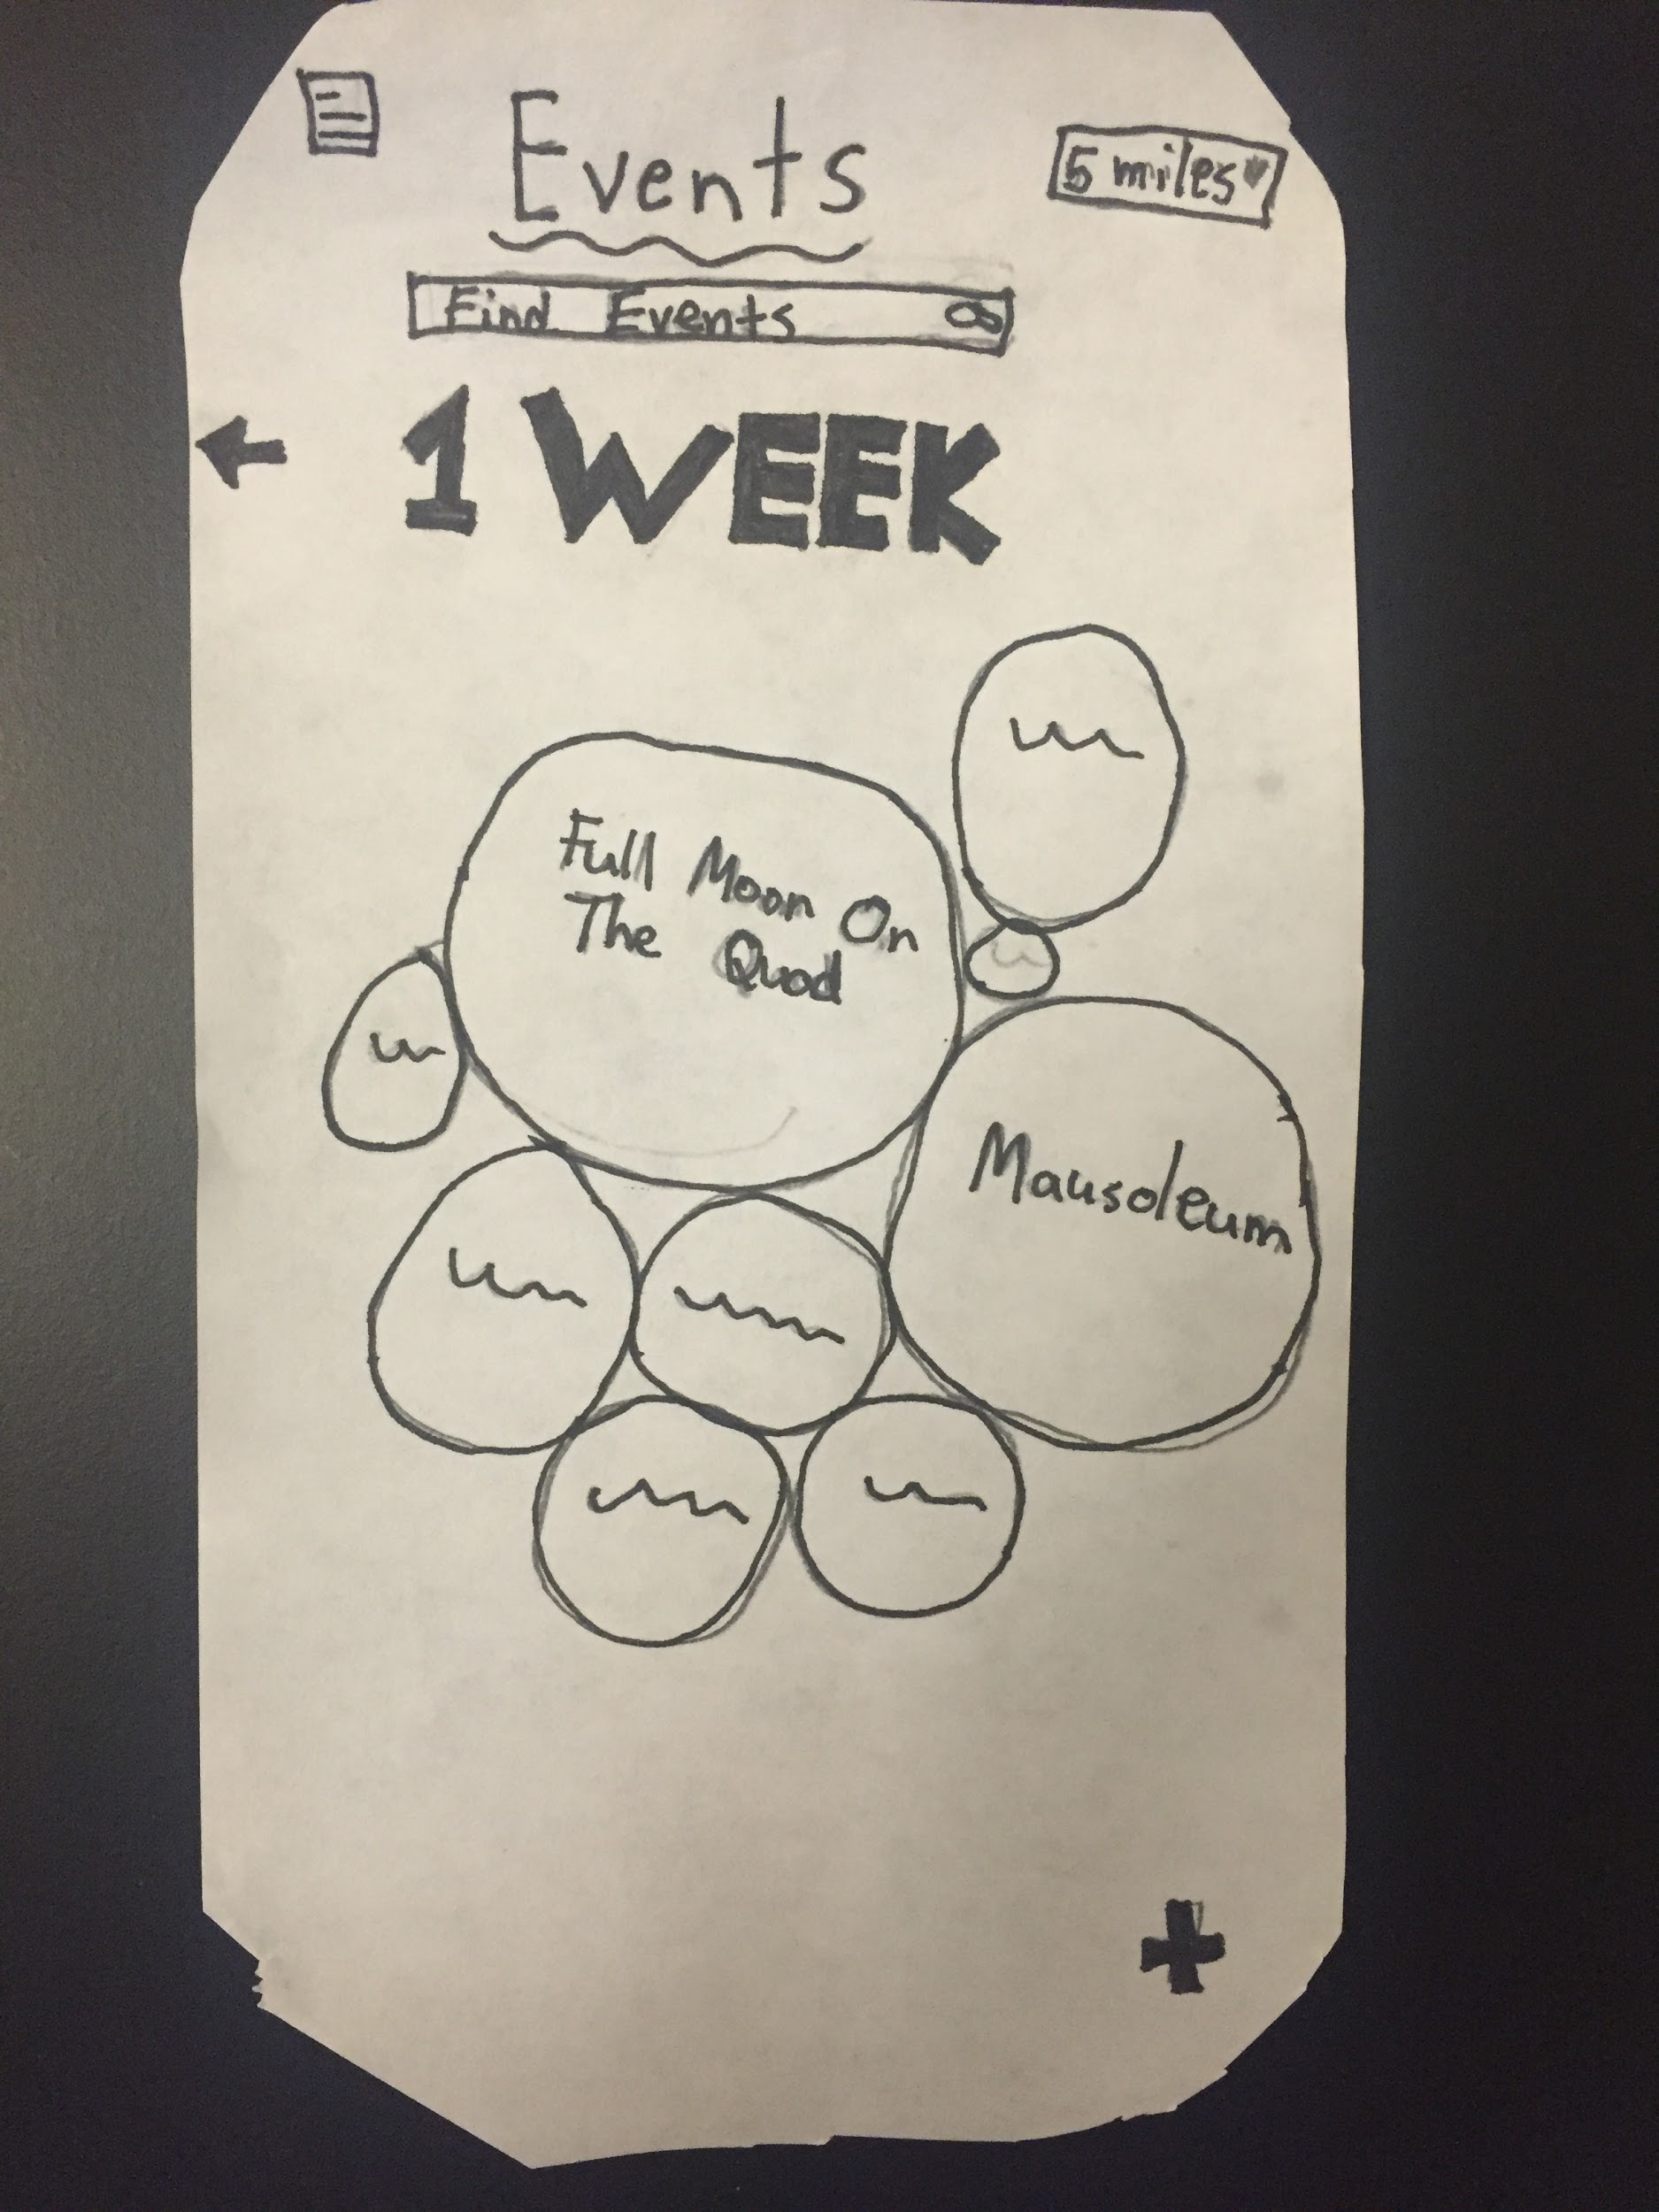 Events
5 miles
Find Events
1 WEEK
Full Moon On
The Quad
Mausoleum